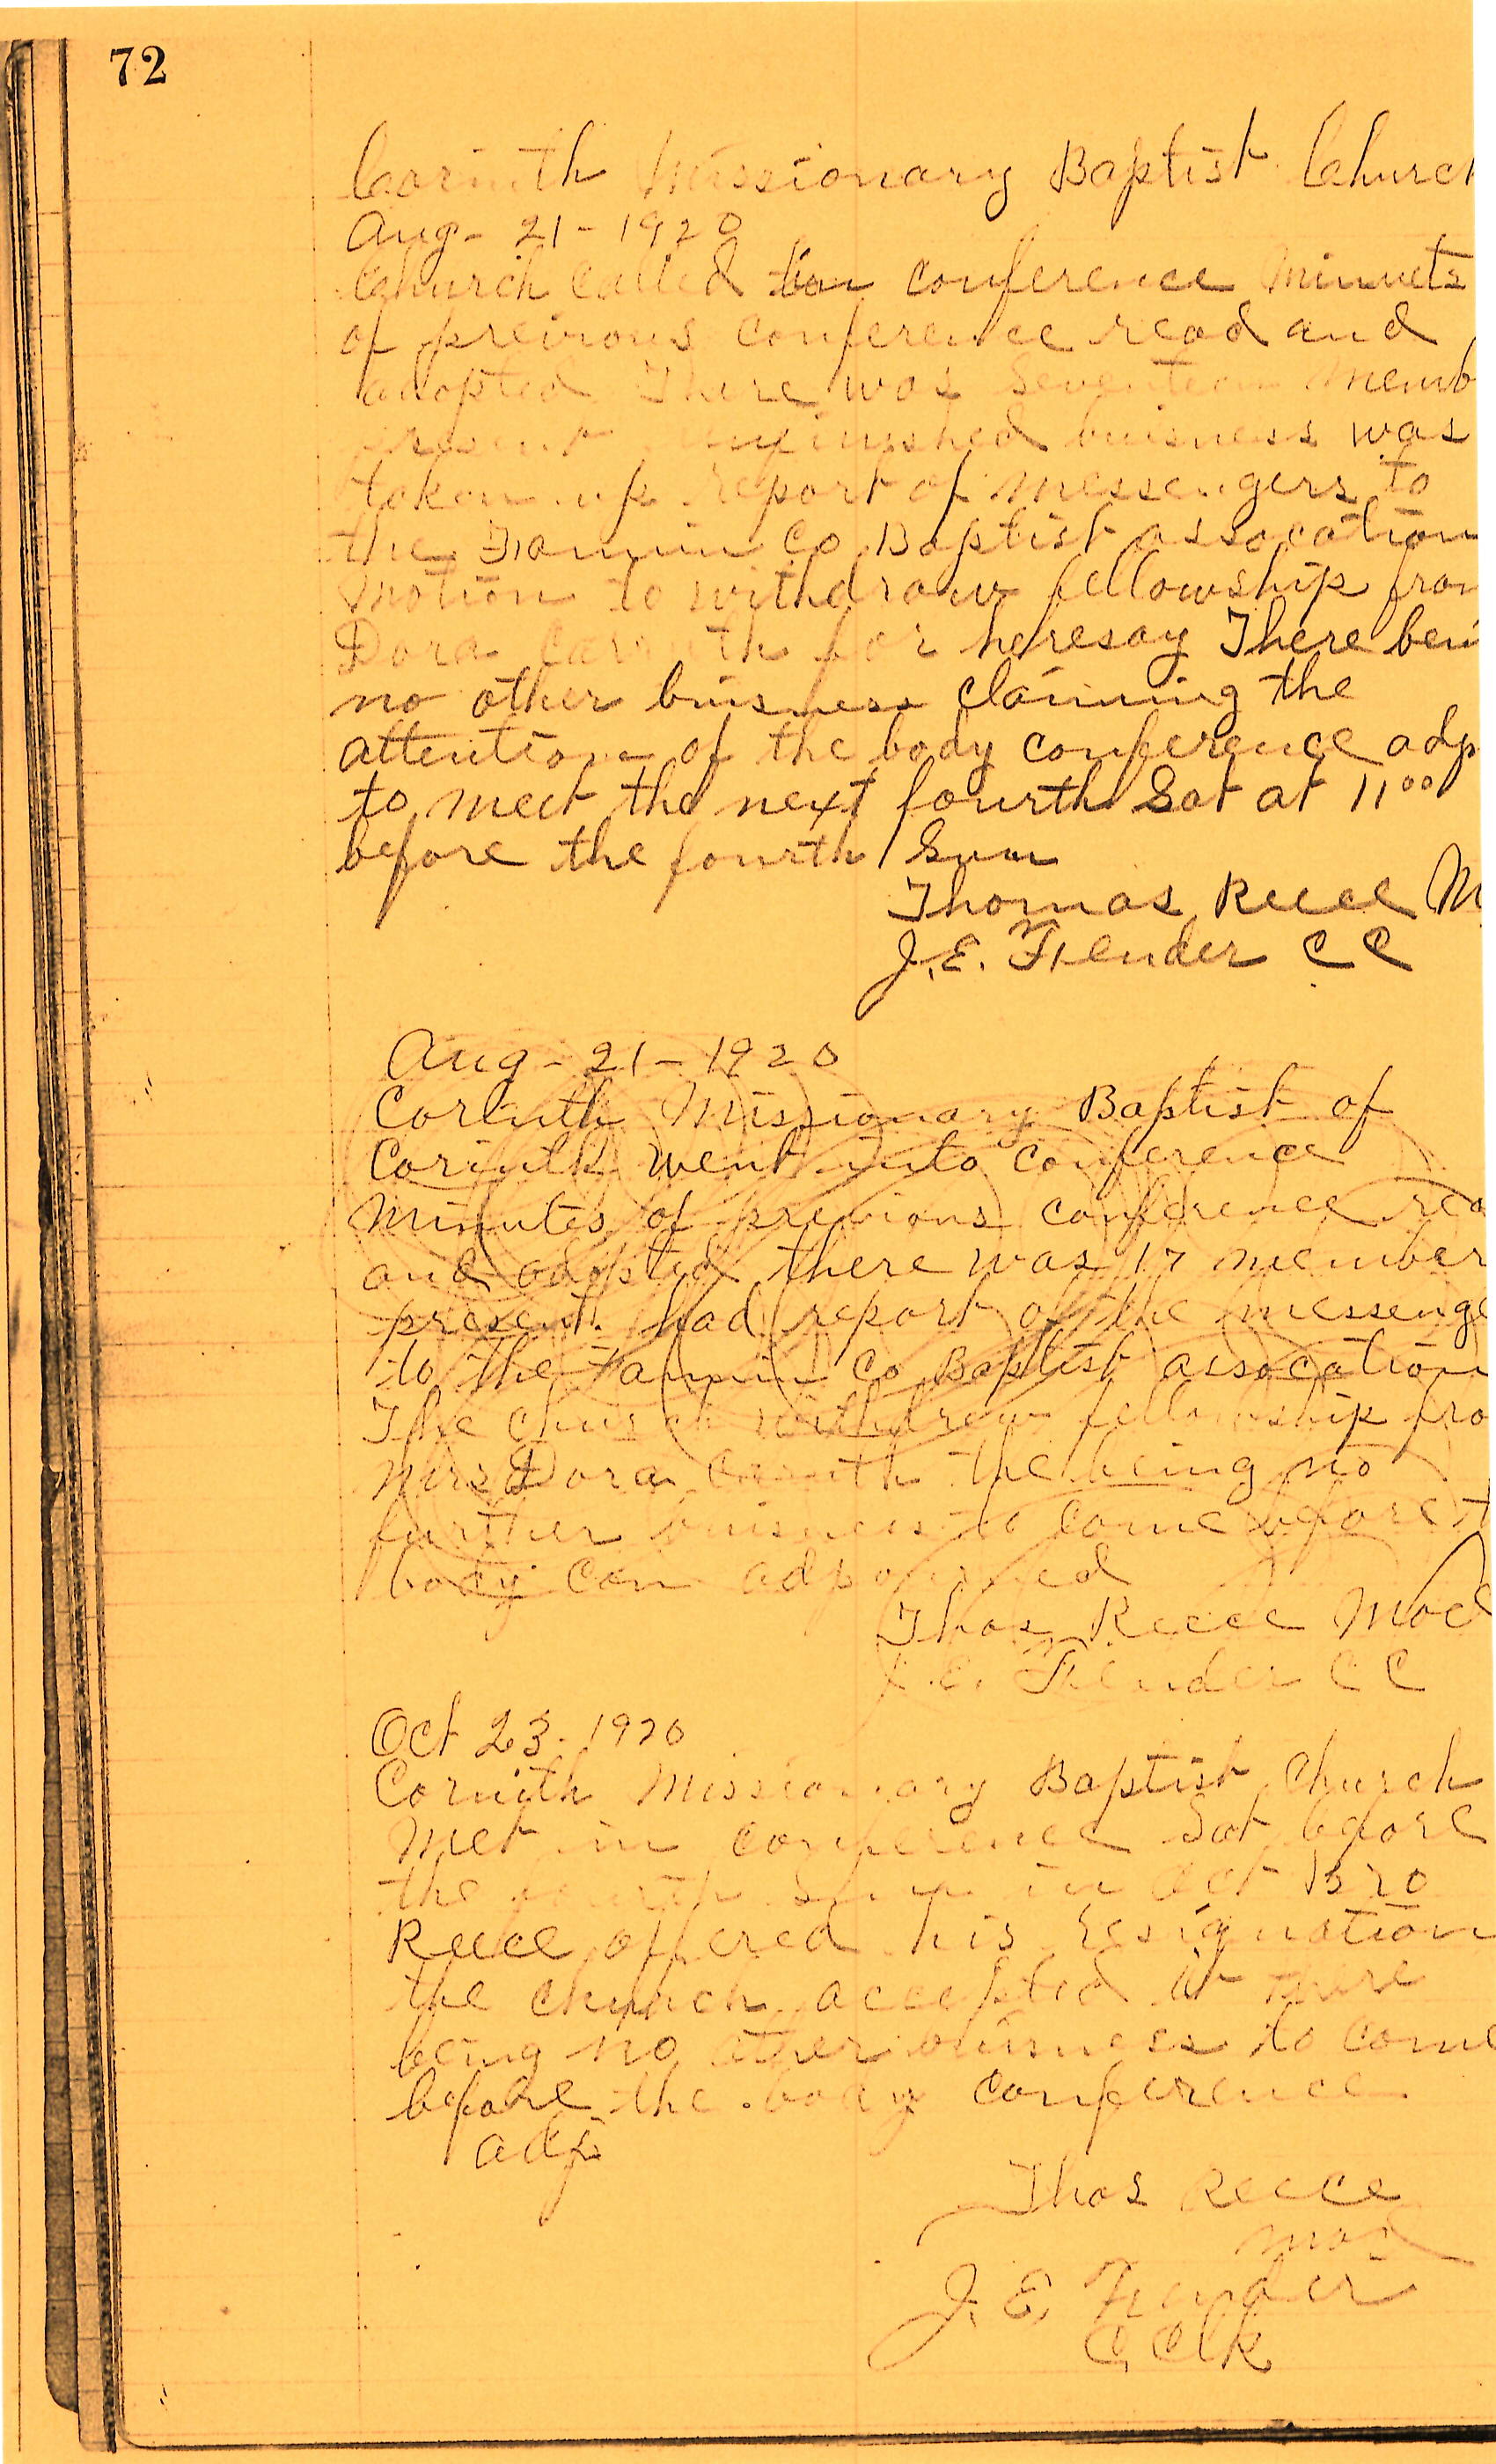 72
Corinth Missionary Baptist Church
Aug - 21 - 1920
Church called conference Minnets
of previous conference read and
adopted There was Seventeen Memb
present unfinished buisness was
taken up report of messengers to
the Fannin Co Baptist assocation
Motion to withdraw fellowship from
Dora for heresay There bein
no other buisness claiming the
attention of the body conference adj
to meet the next fourth Sat at 11 00
before the fourth Sun
Thomas Reece M
J. E. CC
Aug - 21 - 1920
Corinth Missionary Baptist of
Corinth went into conference
Minutes of previous conference rea
and adopted there was 17 member
present. had report of the messenge
to the Fannin Co Baptist assocation
The church withdrew fellowship fro
Mrs Dora the being no
further buisness to come before t
body Con adjourned
Thos Reece Mod
J. E. CC
Oct 23 - 1920
Corinth Missionary Baptist Church
Met in conference Sat before
the fourth Sun in Oct
Reece offered his resignation
the church accepted it there
being no other buisness to come
before the body conference
adj
Thos Reece
Mod
J. E.
C Clk